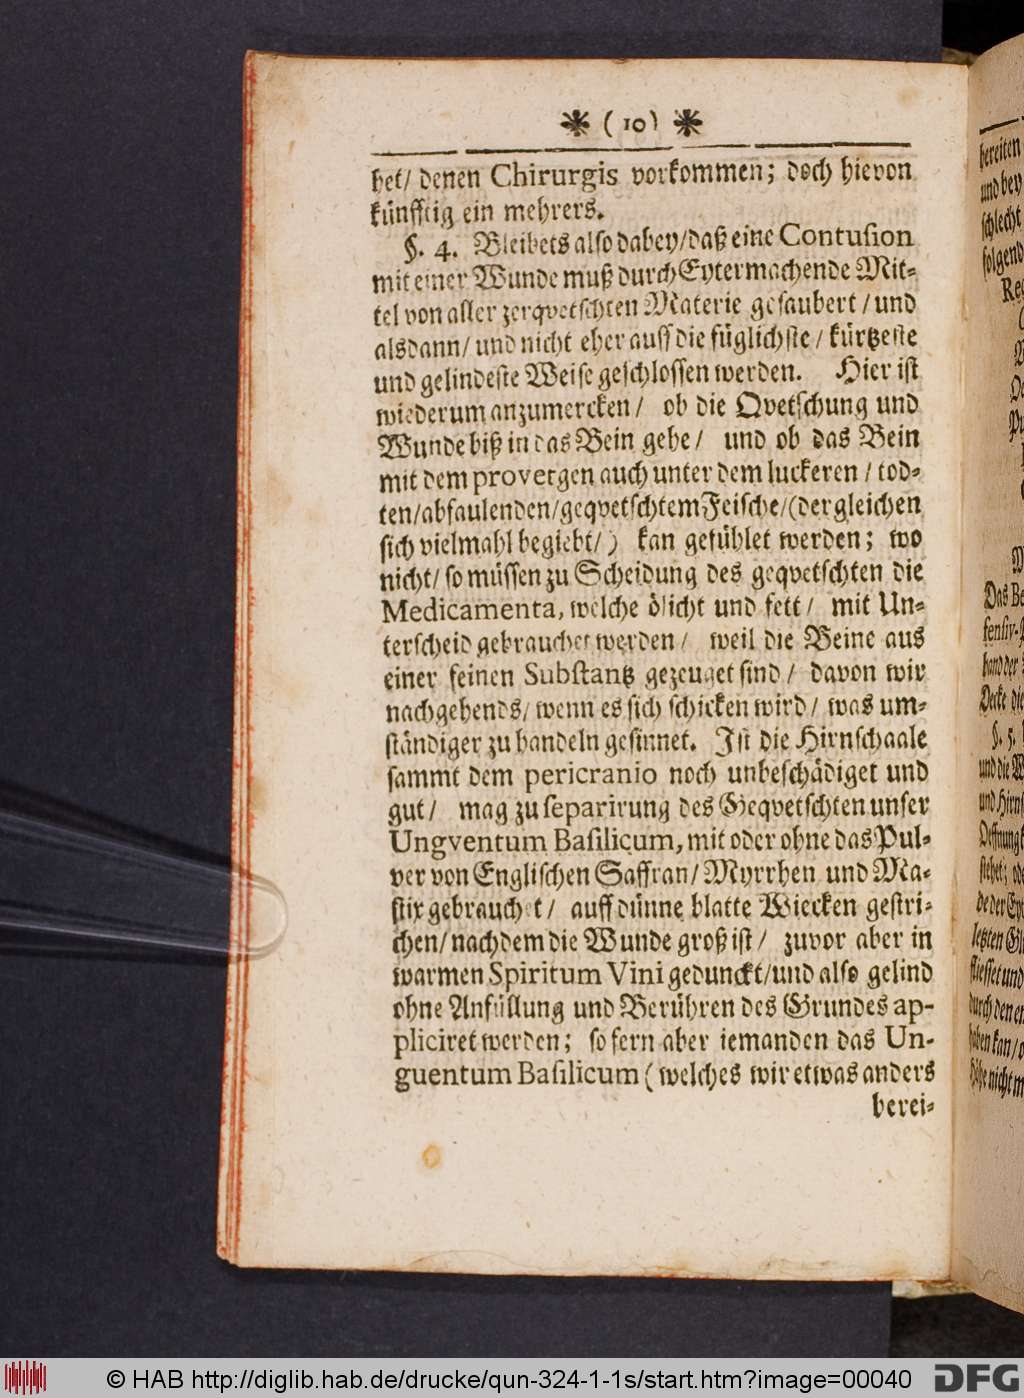 * (10) *
het/ denen Chirurgis vorkommen; doch hievon
künfftig ein mehrers.
§. 4. Bleibets also dabey/daß eine Contusion
mit einer Wunde muß durch Eytermachende Mit-
tel von aller zerqvetschten Materie gesaubert/und
alsdann/ und nicht eher auff die füglichste/ kürtzeste
und gelindeste Weise geschlossen werden. Hier ist
wiederum anzumercken/ ob die Qvetschung und
Wunde biß in das Bein gehe/ und ob das Bein
mit dem provetgen auch unter dem luckeren/tod-
ten/abfaulenden/geqvetschtem Feische/(dergleichen
sich vielmahl begiebt/) kan gefühlet werden; wo
nicht/ so müssen zu Scheidung des geqvetschten die
Medicamenta, welche ölicht und fett/ mit Un-
terscheid gebrauchet werden/ weil die Beine aus
einer feinen Substantz gezeuget sind/ davon wir
nachgehends/ wenn es sich schicken wird/ was um-
ständiger zu handeln gesinnet. Ist die Hirnschaale
sammt dem pericranio noch unbeschädiget und
gut/ mag zu separirung des Geqvetschten unser
Ungventum Basilicum, mit oder ohne das Pul-
ver von Englischen Saffran/ Myrrhen und Ma-
stix gebrauchet/ auff dünne blatte Wiecken gestri-
chen/nachdem die Wunde groß ist/ zuvor aber in
warmen Spiritum Vini gedunckt/und also gelind
ohne Anfüllung und Berühren des Grundes ap-
pliciret werden; so fern aber iemanden das Un-
guentum Basilicum (welches wir etwas anders
berei-
bereiten
und bey
schlecht
folgend
Das Be
fensiv-
band der
Decke die
§. 5.
und die W
und Hirns
Oeffnung
stehet; od
de der Ey
letzten Gl
fliesset und
durch den
haben kan/
Höhe nicht
© HAB http://diglib.hab.de/drucke/qun-324-1-1s/start.htm?image=00040
DFG